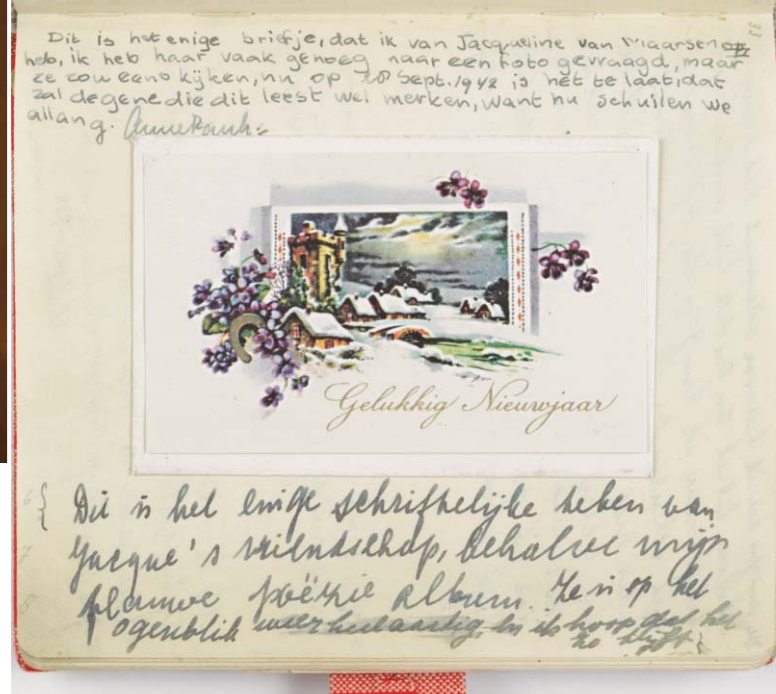 33
Dit is het enige briefje, dat ik van Jacqueline van Maarsen
heb, ik heb haar vaak genoeg naar een foto gevraagd, maar
ze zou eens kijken, nu op 28 Sept. 1942 is het te laat, dat
zal degene die dit leest wel merken, want nu schuilen we
allang. Anne Frank.
Gelukkig Nieuwjaar
Dit is het enige schriftelijke teken van
Jacque's vriendschap, behalve mijn
poëzie album. Ze is op het
ogenblik weer heel aardig, en ik hoop dat het
zo blijft.